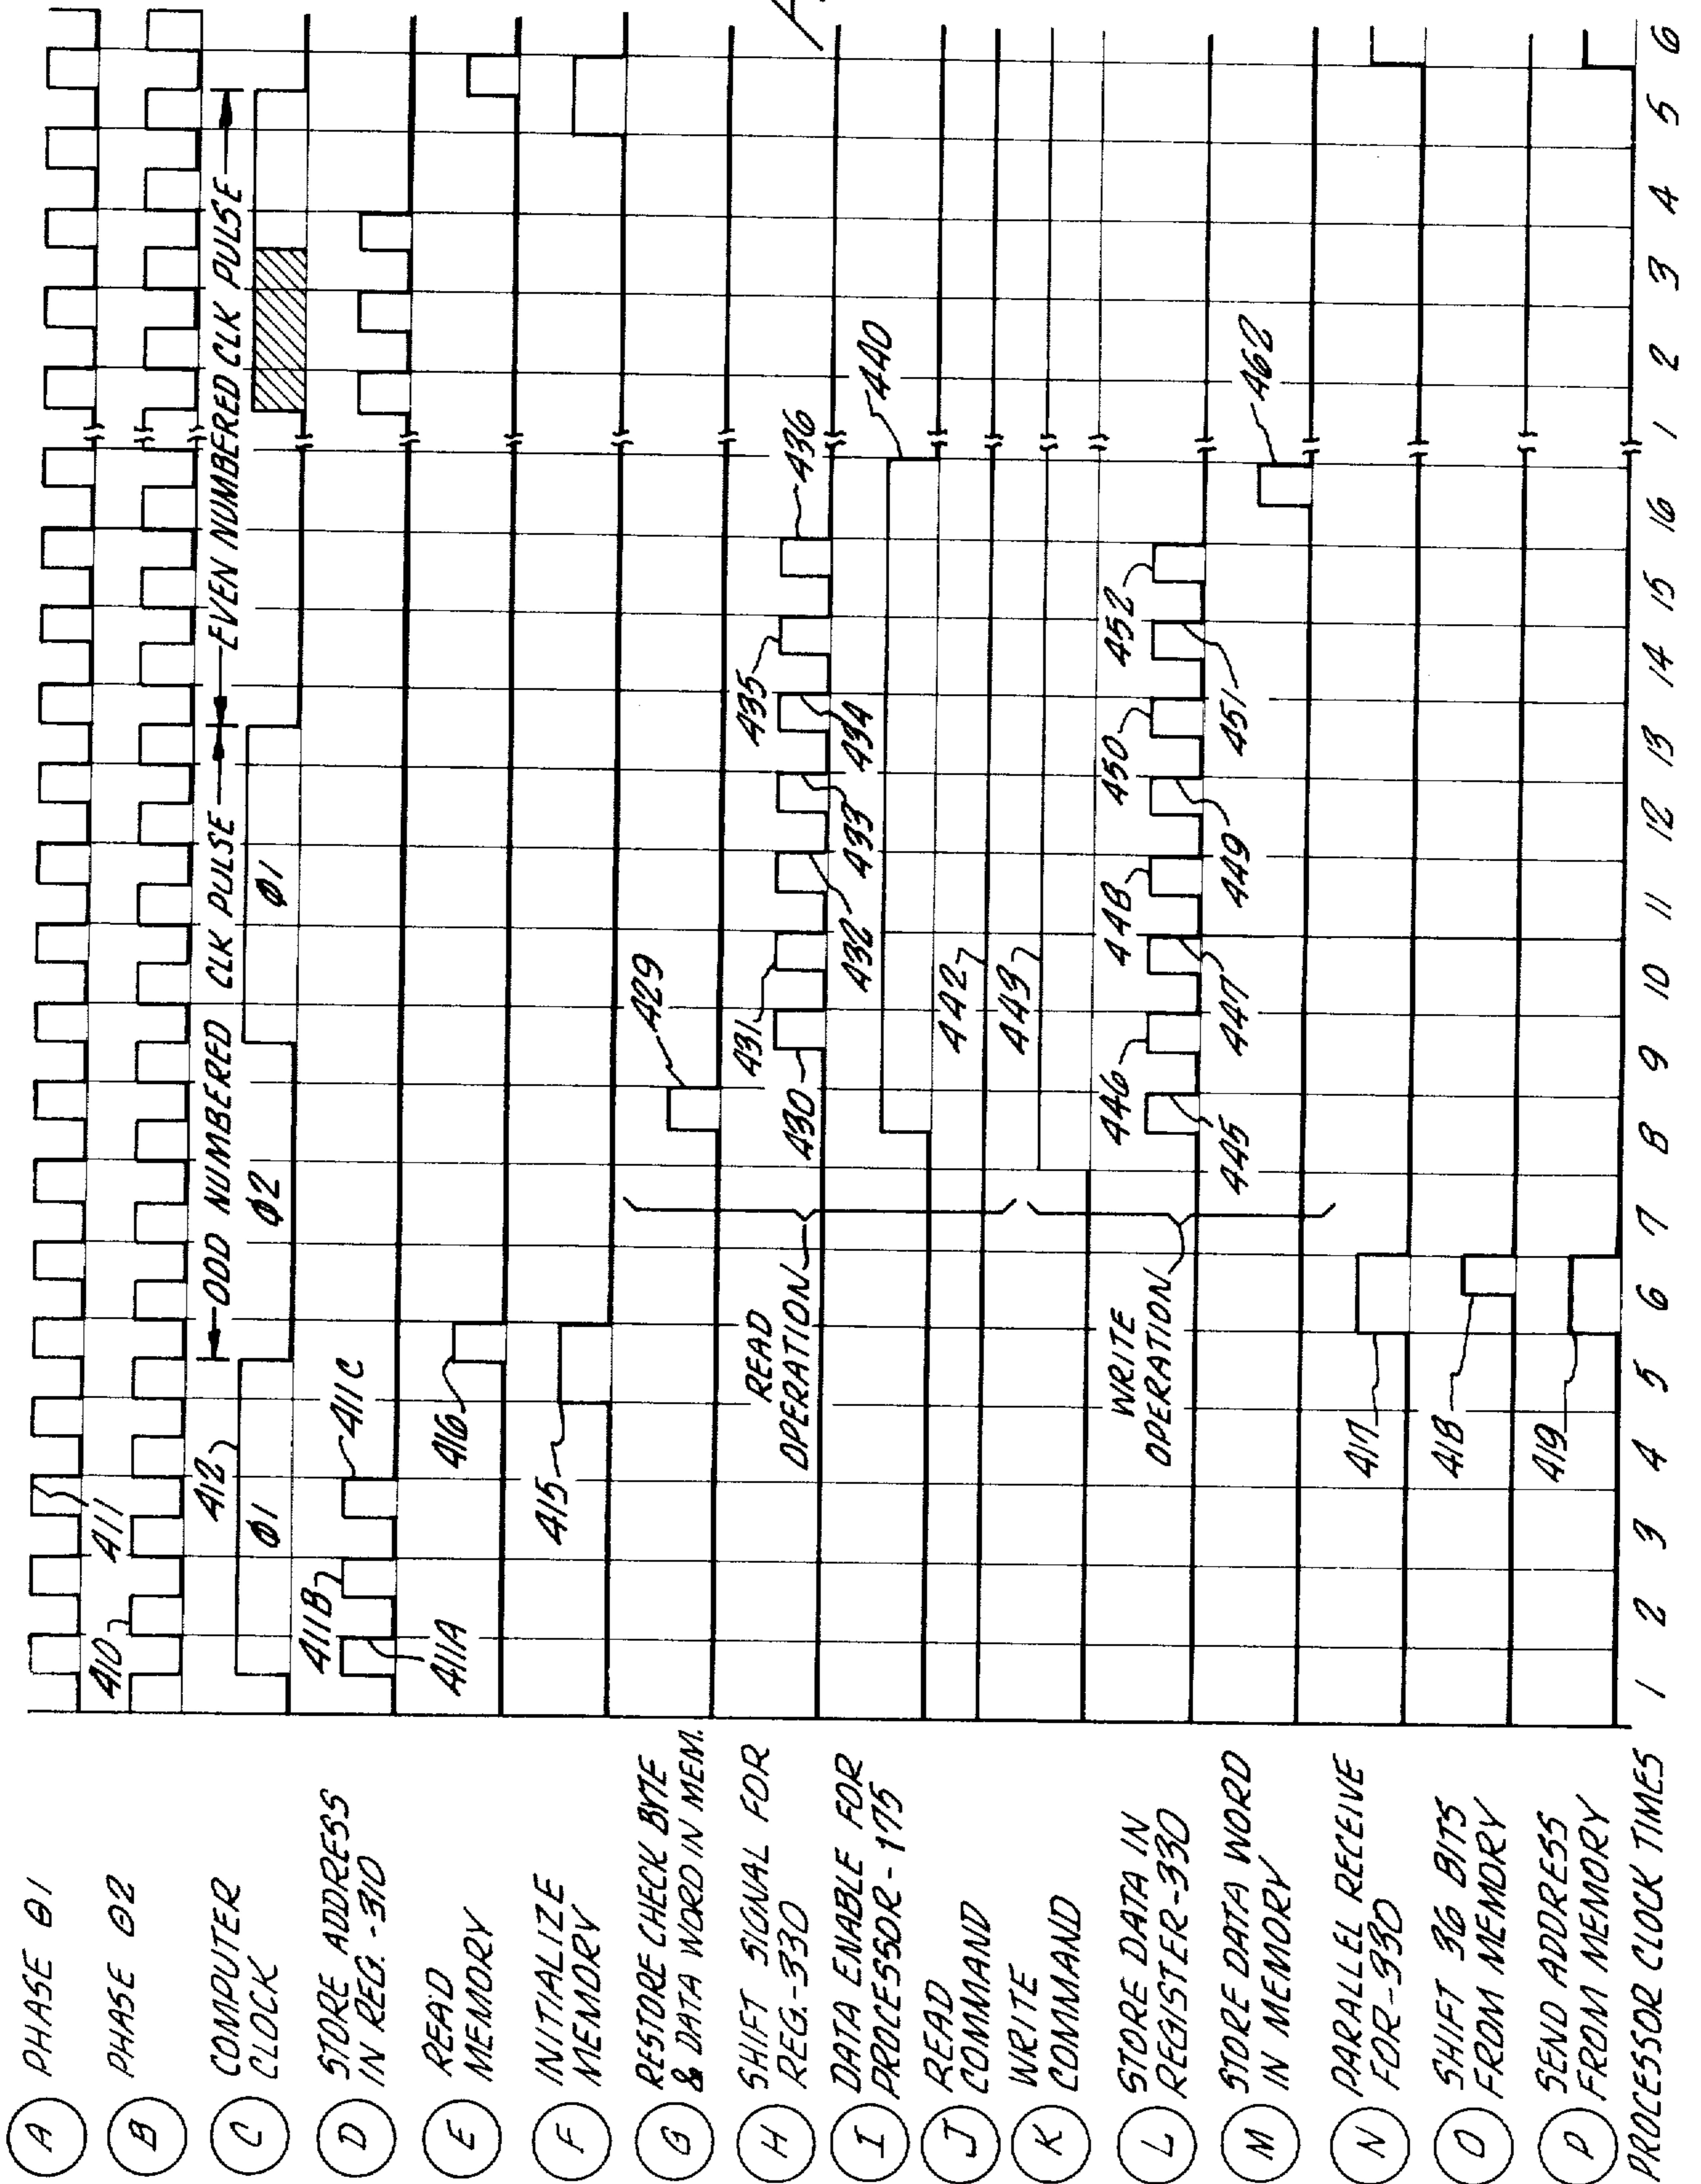 A PHASE Θ1
B PHASE Θ2
C COMPUTER
CLOCK
D STORE ADDRESS
IN REG.-310
E READ
MEMORY
F INITIALIZE
MEMORY
G RESTORE CHECK BYTE
& DATA WORD IN MEM.
H SHIFT SIGNAL FOR
REG.-330
I DATA ENABLE FOR
PROCESSOR-175
J READ
COMMAND
K WRITE
COMMAND
L STORE DATA IN
REGISTER-330
M STORE DATA WORD
IN MEMORY
N PARALLEL RECEIVE
FOR-330
O SHIFT 36 BITS
FROM MEMORY
P SEND ADDRESS
FROM MEMORY
PROCESSOR CLOCK TIMES
410
411
412
ODD NUMBERED CLK PULSE
EVEN NUMBERED CLK PULSE
Ø1
Ø2
Ø1
411A
411B
411C
416
415
429
READ
OPERATION
430
431
432
433
434
435
436
440
442
443
WRITE
OPERATION
445
446
447
448
449
450
451
452
462
417
418
419
1 2 3 4 5 6 7 8 9 10 11 12 13 14 15 16 1 2 3 4 5 6